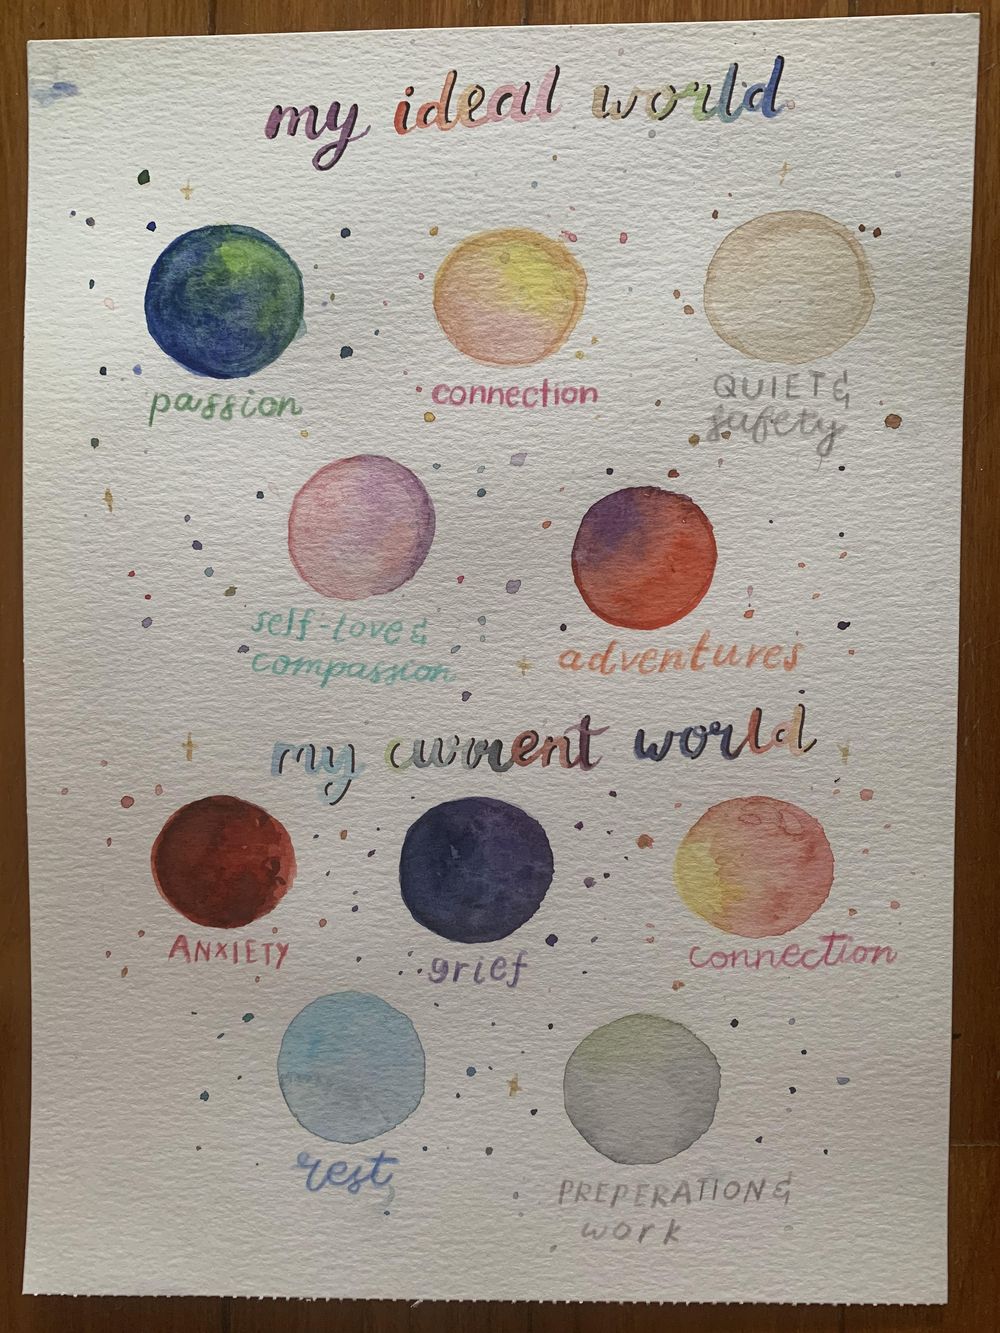 my ideal world
passion
connection
QUIET &
safety
self-love &
compassion
adventures
my current world
ANXIETY
grief
connection
rest
PREPERATION &
work